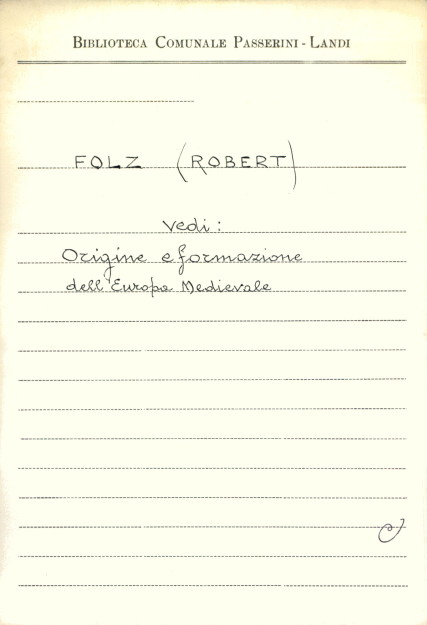 BIBLIOTECA COMUNALE PASSERINI - LANDI
FOLZ (ROBERT)
vedi:
Origine e formazione
dell'Europa Medievale